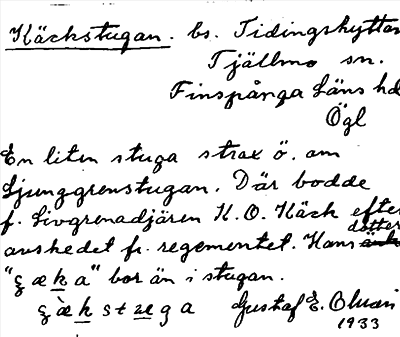 Käckstugan. bs. Tidingshyttan
Tjällmo sn.
Finspånga Läns hd
Ögl
En liten stuga strax ö. om
Ljunggrenstugan. Där bodde
f. Livgrenadjären K. O. Käck efter
avskedet fr. regementet. Hans dotter
"ʒæka" bor än i stugan.
ʒæ̀kstʉga Gustaf E.
1933